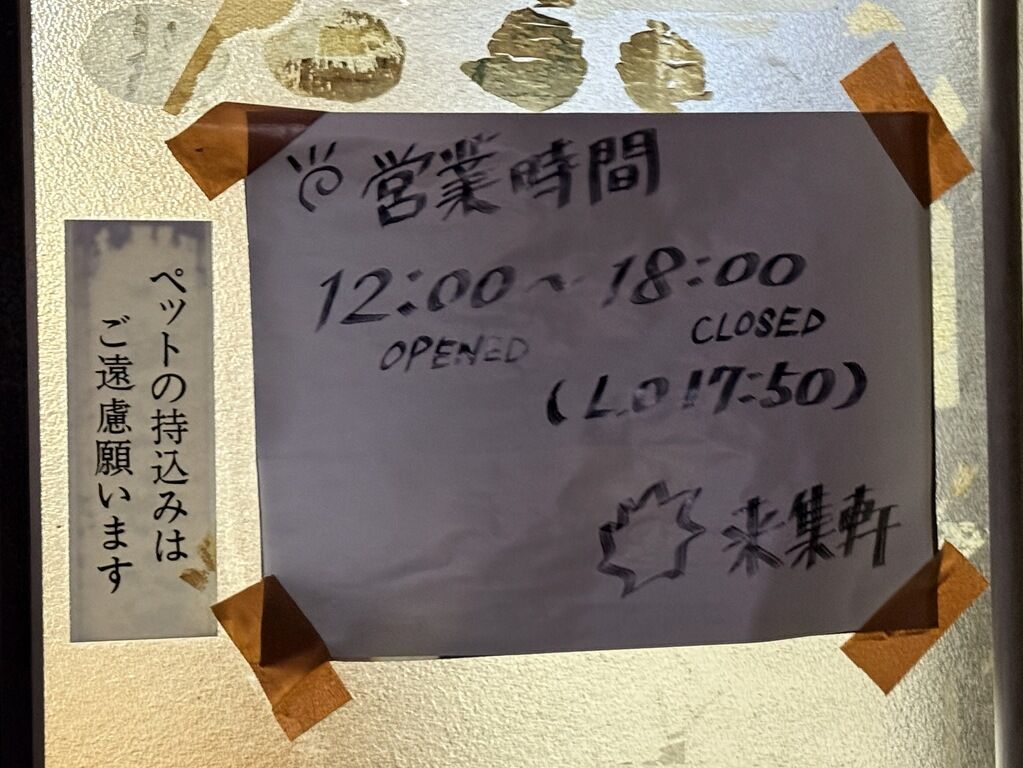 営業時間
12:00~18:00
OPENED
CLOSED
(L.O 17:50)
来集軒
ペットの持込みは
ご遠慮願います